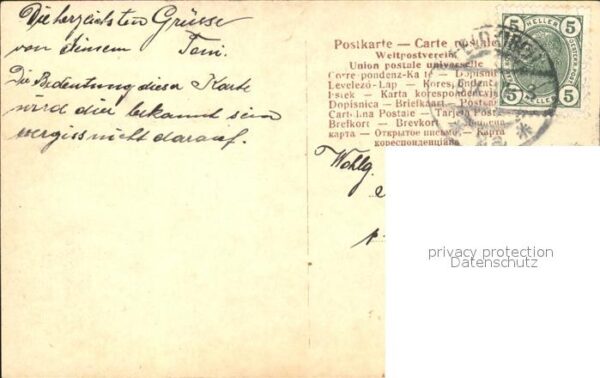 Die herzlichsten Grüsse
von Deinem Toni.
Die Bedeutung dieser Karte
wird dir bekannt sein
vergiss nicht darauf.
Postkarte — Carte postale
Weltpostverein
Union postale universelle
Corre pondenz-Ka te — Dopisni
Levelező-Lap — Kores ondenčn
Karta korespondencyjna
Dopisnica — Briefkaart — Postcard
Cartolina Postale — Tarjeta Postal
Brefkort — Brevkort
карта — Открытое письмо — Карта
кореспонденційна
5 HELLER 5
5 5
Wohlg.
privacy protection
Datenschutz